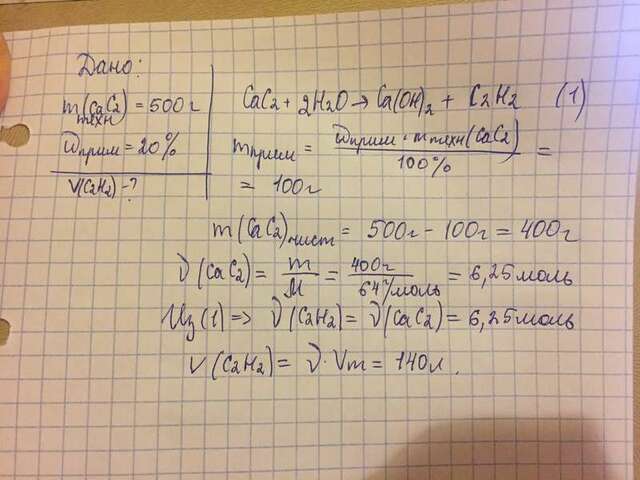 Дано:
m(CaC2) = 500г
техн
Wприм = 20%
V(C2H2) - ?
CaC2 + 2H2O → Ca(OH)2 + C2H2 (1)
mприм = Wприм · mтехн(CaC2) / 100% =
= 100г
m(CaC2)чист = 500г - 100г = 400г
ν(CaC2) = m/M = 400г / 64г/моль = 6,25моль
Из (1) => ν(C2H2) = ν(CaC2) = 6,25моль
V(C2H2) = ν · Vm = 140л.